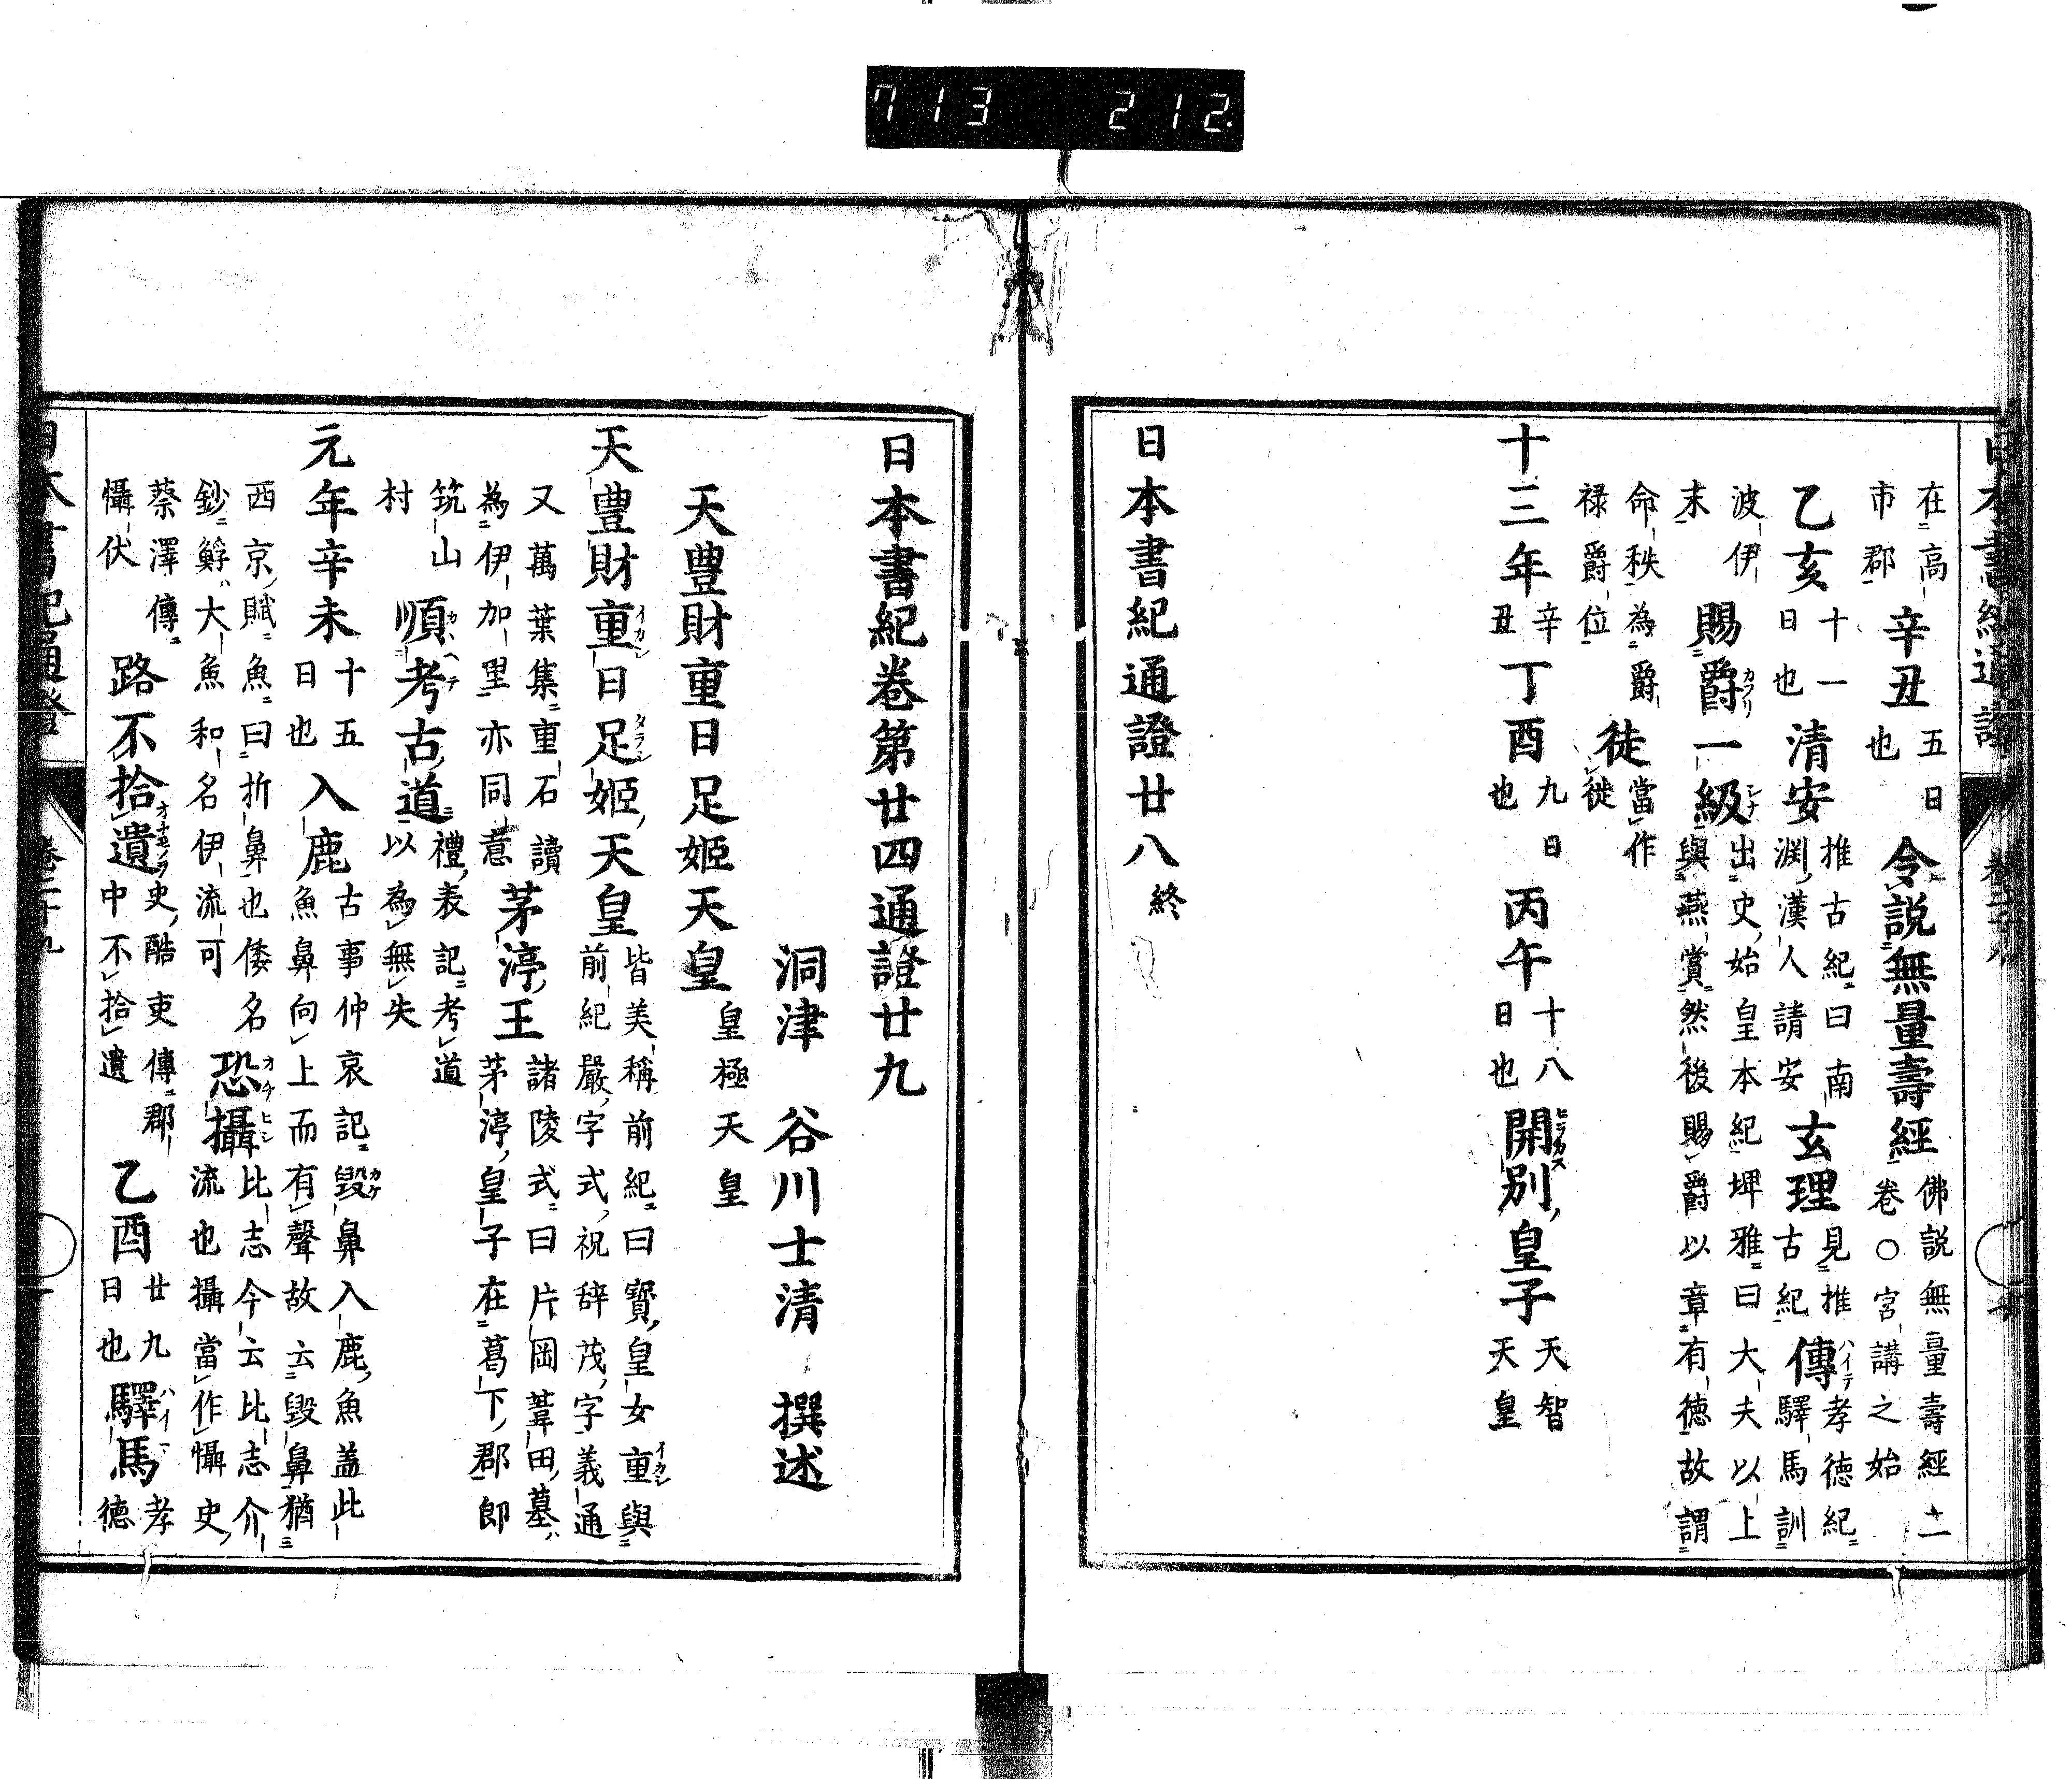 日本書紀通證 卷二十八 廿
在高市郡 辛丑 五日也 令説無量壽經 佛説無量壽經二卷○宮講之始
乙亥 十一日也 清安 推古紀曰南淵漢人請安 玄理 見推古紀 傳ハイテ 孝徳紀驛馬訓
波伊末 賜爵カフリ一級シナ 出史始皇本紀埤雅曰大夫以上與燕賞然後賜爵以章有徳故謂
命秩為爵禄爵位 徒 當作徙
十三年 辛丑 丁酉 九日也 丙午 十八日也 開ヒラカス別皇子 天智天皇
日本書紀通證廿八 終
日本書紀巻第廿四通證廿九
洞津 谷川士清 撰述
天豊財重日足姫天皇 皇極天皇
天豊財重イカシ日足タラシ姫天皇 皆美稱前紀曰寶皇女重イカシ與前紀嚴字式祝辞茂字義通
又萬葉集重石讀為伊加里亦同意 茅渟王 諸陵式曰片岡葦田墓ハ茅渟皇子在葛下郡即
筑山村 順考カヘテ古道 禮表記考道以為無失
元年辛未 十五日也 入鹿 古事仲哀記毀カケ鼻入鹿魚盖此魚鼻向上而有聲故云毀鼻猶
西京賦魚曰折鼻也倭名鈔ハ大魚和名伊流可 恐攝オチヒシ 比志今云比志介流也攝當作懾史
蔡澤傳懾伏 路不拾遺オチモノヲ 史酷吏傳郡中不拾遺 乙酉 廿九日也 驛馬ハイマ 孝徳
日本書紀通證 卷二十九 一
713 212.